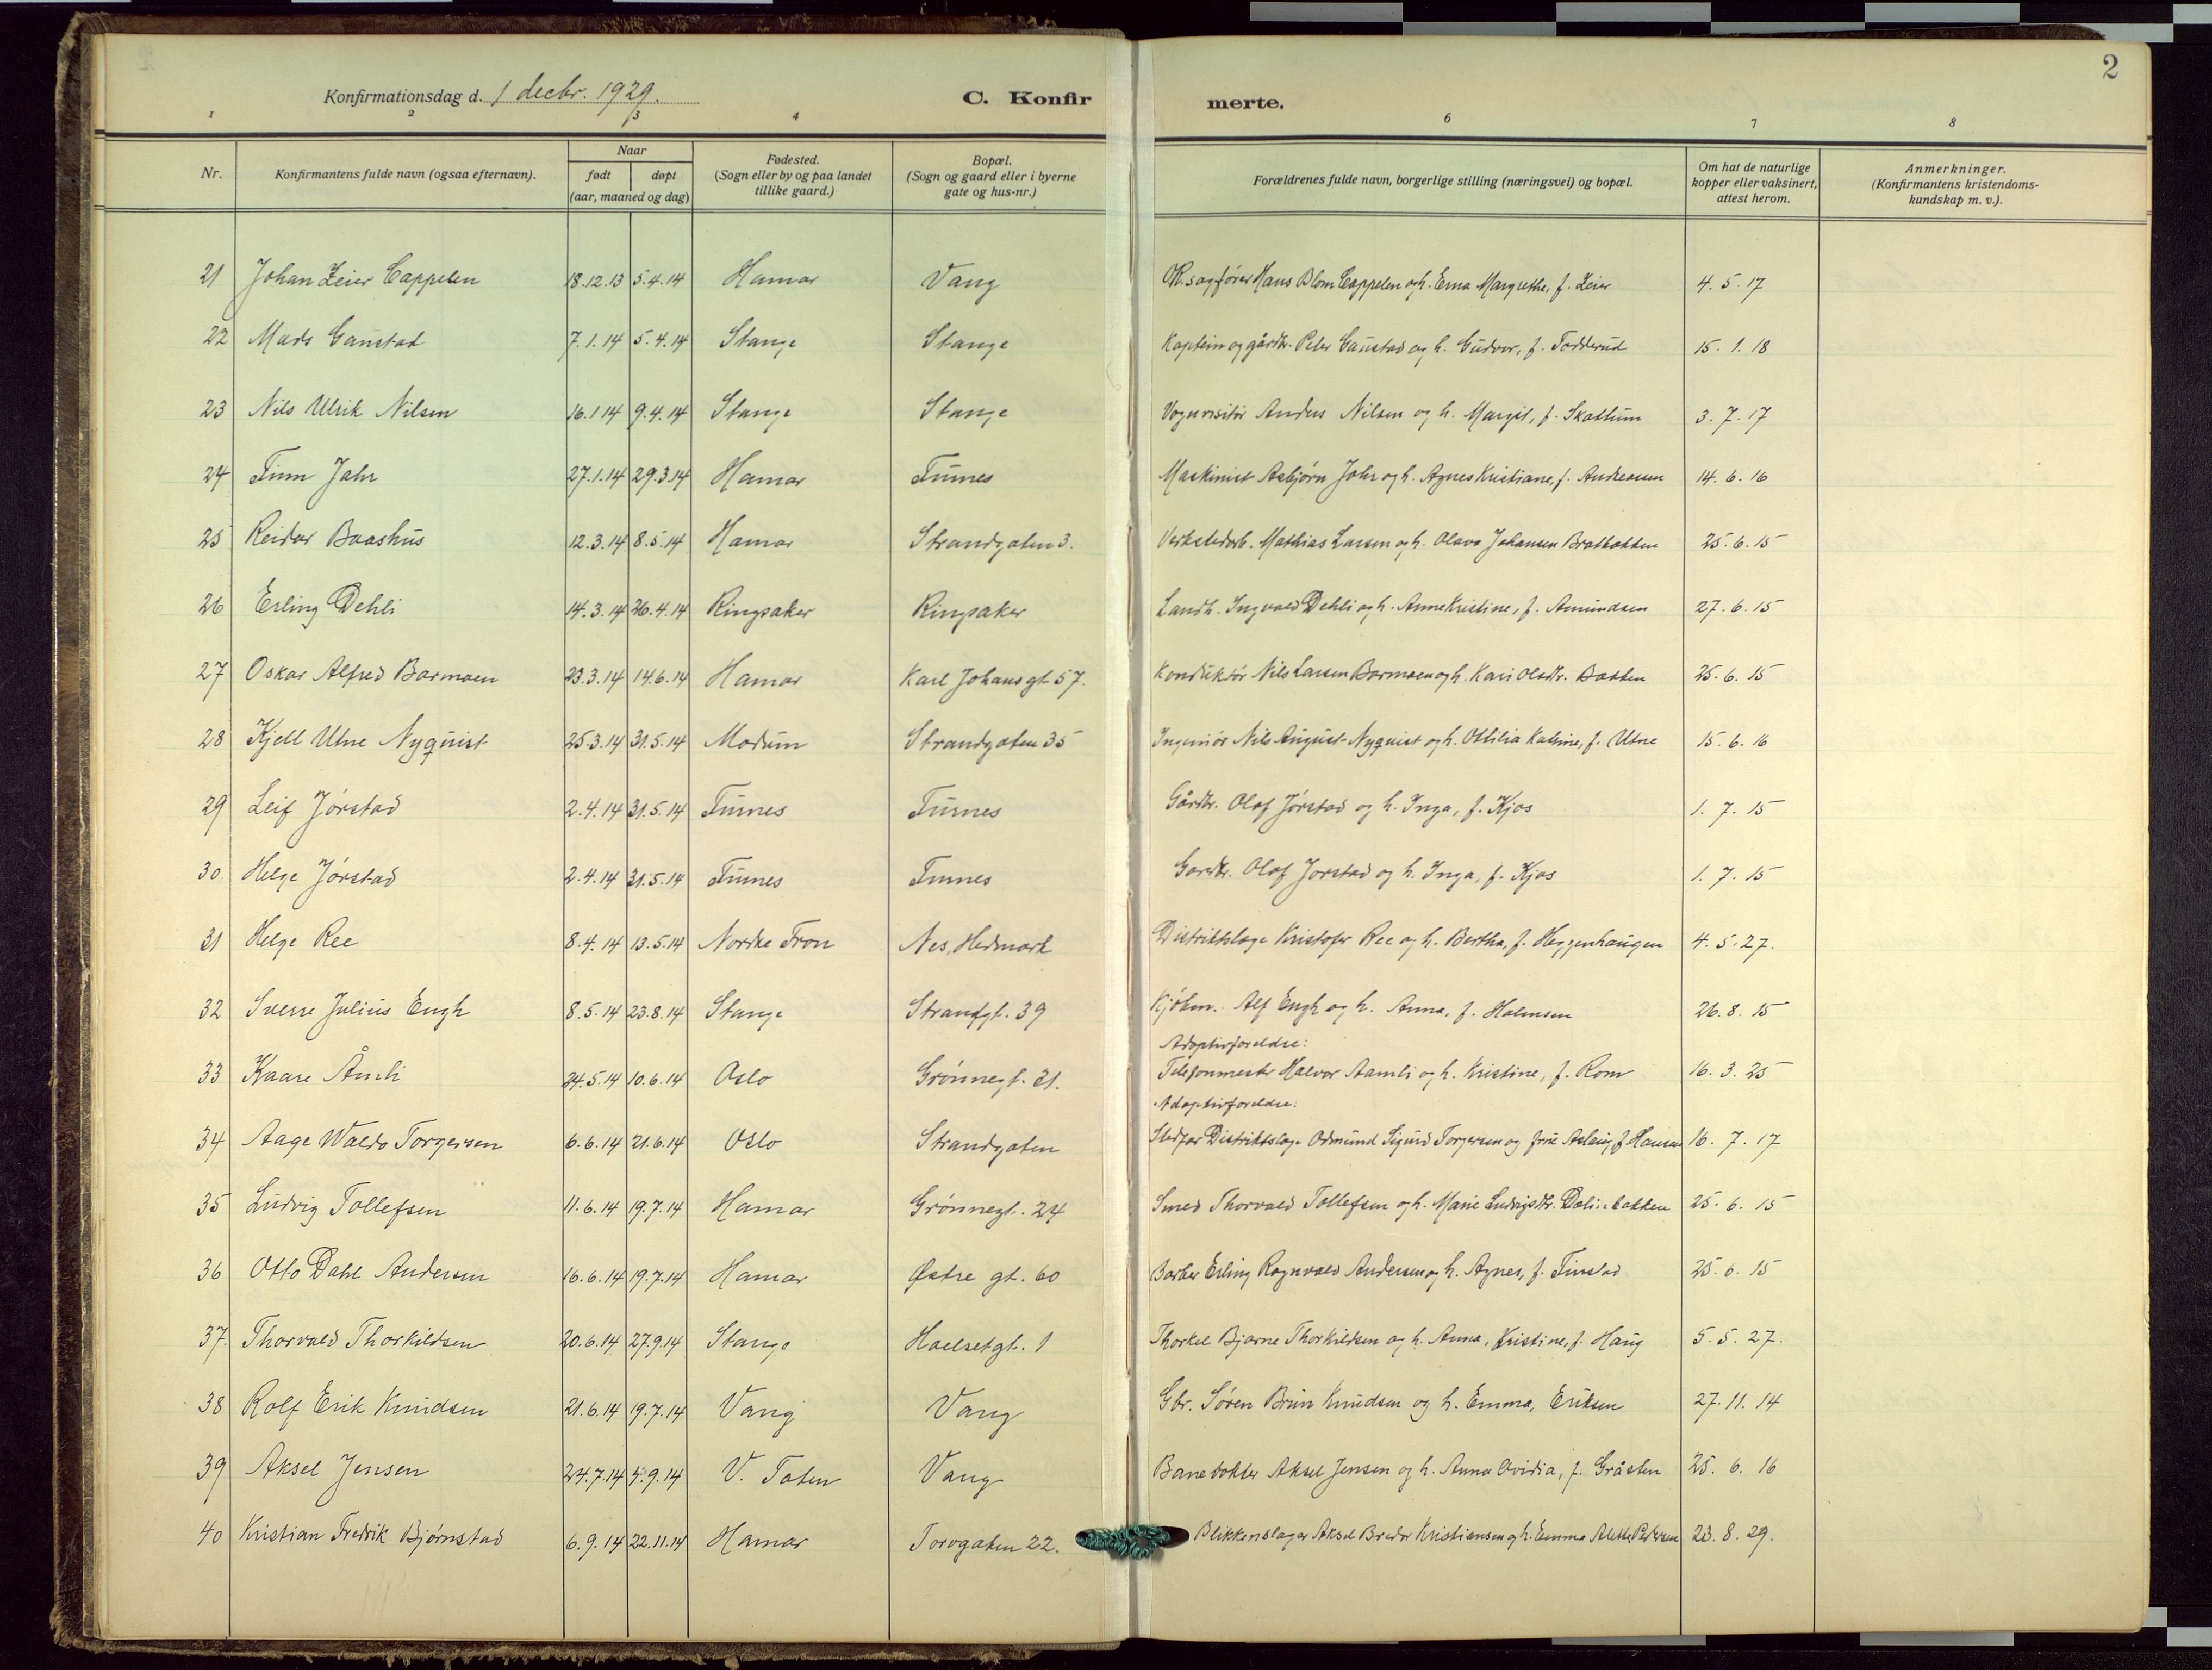 2
Konfirmationsdag d. 1 decbr. 1929.
C. Konfir
merte.
1 2 3 4 6 7 8
Nr. Konfirmantens fulde navn (ogsaa efternavn). Naar født døpt (aar, maaned og dag) Fødested. (Sogn eller by og paa landet tillike gaard.) Bopæl. (Sogn og gaard eller i byerne gate og hus-nr.) Forældrenes fulde navn, borgerlige stilling (næringsvei) og bopæl. Om hat de naturlige kopper eller vaksinert, attest herom. Anmerkninger. (Konfirmantens kristendoms-kundskap m. v.).
21 Johan Zeier Cappelen 18.12.13 5.4.14 Hamar Vang OR.sagfører Hans Blom Cappelen og h. Erna Margrethe, f. Zeier 4. 5. 17
22 Mads Gaustad 7.1.14 5.4.14 Stange Stange Kaptein og gårdbr. Peter Gaustad og h. Gudvor, f. Fodderud 15. 1. 18
23 Nils Ulrik Nilsen 16.1 14 9.4.14 Stange Stange Vognvisitør Anders Nilsen og h. Margit, f. Skattum 3. 7. 17
24 Finn Jahr 27.1.14 29.3.14 Hamar Furnes Maskinist Asbjørn Jahr og h. Agnes Kristiane, f. Andreassen 14. 6. 16
25 Reidar Baashus 12.3.14 8.5.14 Hamar Strandgaten 3. Verkstedarb. Mathias Larsen og h. Olava Johansen Bratbakken 25. 6. 15
26 Erling Dehli 14.3.14 26.4.14 Ringsaker Ringsaker Landh. Ingvald Dehli og h. Anne Kristine, f. Amundsen 27. 6. 15
27 Oskar Alfred Barmoen 23.3.14 14.6.14 Hamar Karl Johans gt. 57. Konduktør Nils Larsen Barmoen og h. Kari Olsdtr. Bakken 25. 6. 15
28 Kjell Utne Nyquist 25.3.14 31.5.14 Modum Strandgaten 35 Ingeniør Nils August Nyquist og h. Ottilia Katrine, f. Utne 15. 6. 16
29 Leif Jørstad 2.4.14 31.5.14 Furnes Furnes Gårdbr. Olaf Jørstad og h. Inga, f. Kjos 1. 7. 15
30 Helge Jørstad 2.4.14 31.5.14 Furnes Furnes Gardbr. Olaf Jørstad og h. Inga, f. Kjos 1. 7. 15
31 Helge Ree 8.4.14 13.5.14 Nordre Fron Nes, Hedmark Distriktslæge Kristofer Ree og h. Bertha, f. Heggenhaugen 4. 5. 27.
32 Sverre Julius Engh 8.5.14 23.8.14 Stange Strandgt. 39 Kjøbm. Alf Engh og h. Anna, f. Holmsen 26. 8. 15
Adoptivforeldre:
33 Kaare Åmli 24.5.14 10.6.14 Oslo Grønnegt. 31. Telefonmester Halvor Aamli og h. Kristine, f. Rom 16. 3. 25
Adoptivforeldre:
34 Aage Waldo Torgersen 6.6.14 21.6.14 Oslo Strandgaten Stedfar Distriktslæge Odmund Sigurd Torgersen og frue Aslaug, f. Hansen 16. 7. 17
35 Ludvig Tollefsen 11.6.14 19.7.14 Hamar Grønnegt. 24 Smed Thorvald Tollefsen og h. Marie Ludvigsdtr. Dælinbakken 25. 6. 15
36 Otto Dahl Andersen 16.6.14 19.7.14 Hamar Østre gt. 60 Barber Erling Ragnvald Andersen og h. Agnes, f. Finstad 25. 6. 15
37. Thorvald Thorkildsen 20.6.14 27.9.14 Stange Hoelsetgt. 1 Thorkel Bjarne Thorkildsen og h. Anna, Kristine, f. Haug 5. 5. 27.
38 Rolf Erik Knudsen 21.6.14 19.7.14 Vang Vang Gbr. Søren Brun Knudsen og h. Emma, Eriksen 27. 11. 14
39 Aksel Jensen 24.7.14 4.9.14 V. Toten Vang Banevokter Aksel Jensen og h. Anna Ovidia, f. Gråsten 25. 6. 16
40 Kristian Fredrik Bjørnstad 6.9.14 22.11.14 Hamar Torvgaten 22. Blikkenslager Aksel Breder Kristiansen og h. Emma Alette Pedersen 23. 8. 29.